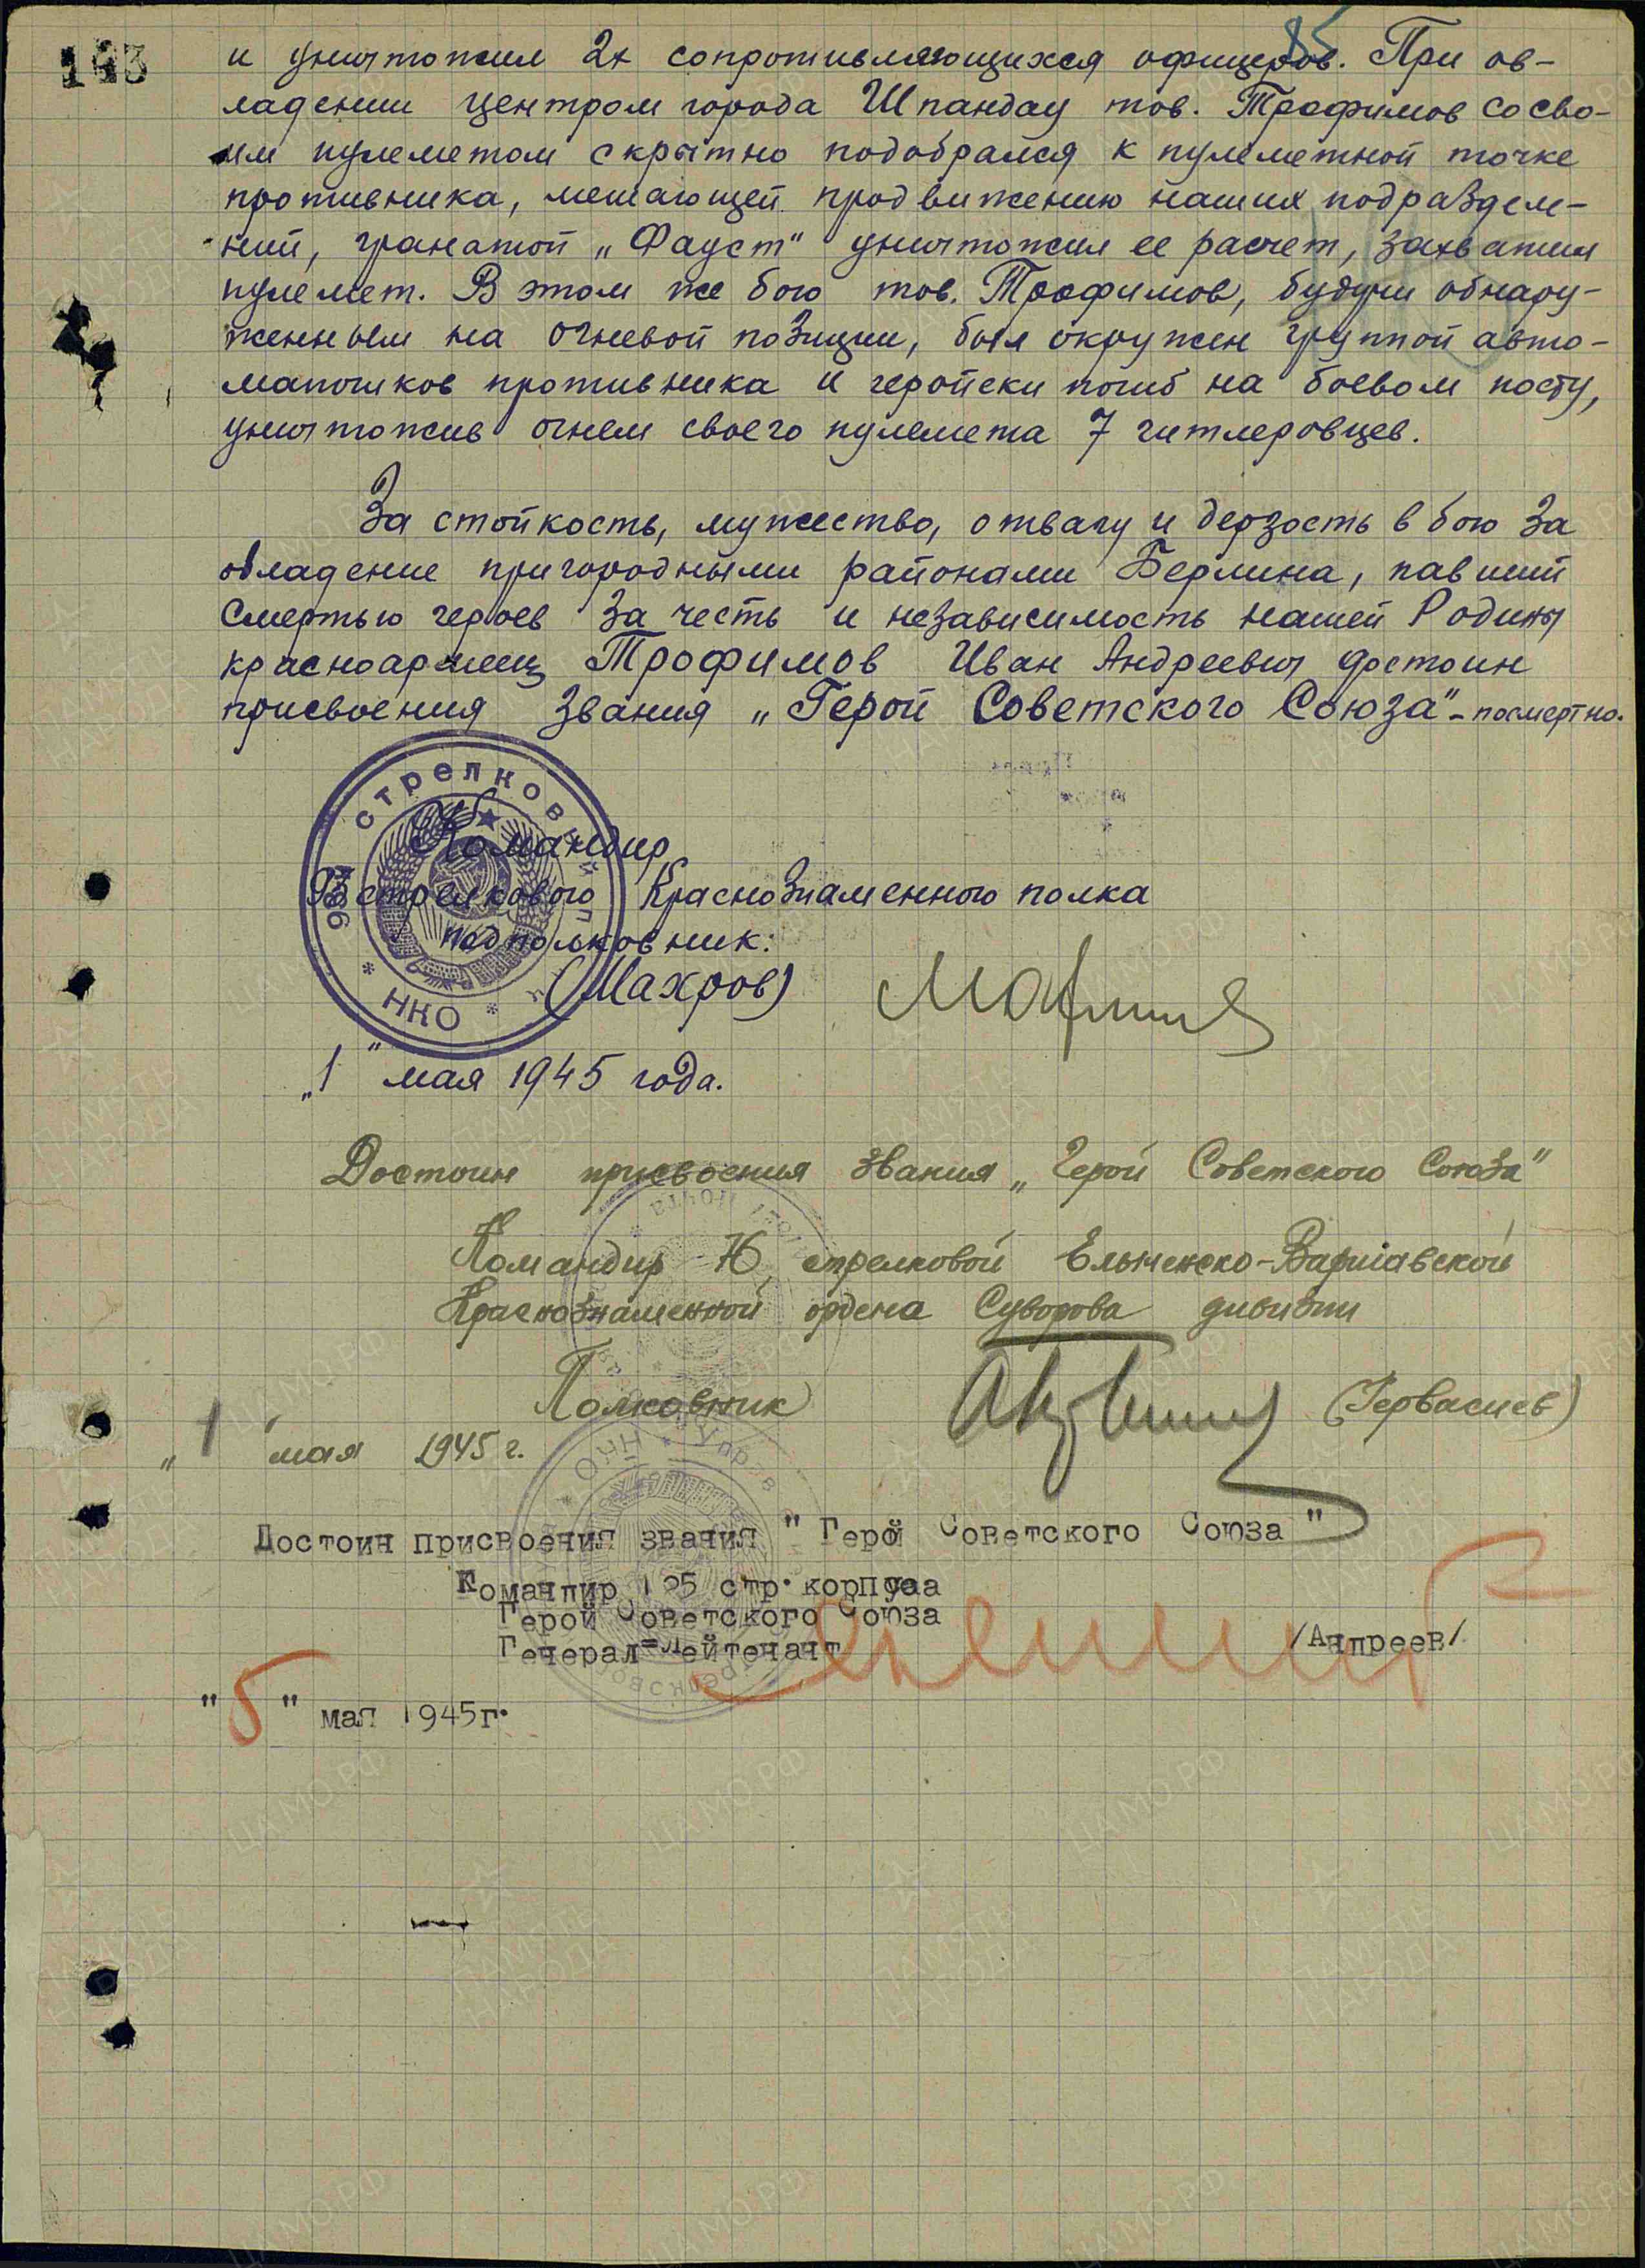 143
85
и уничтожил 2х сопротивляющихся офицеров. При ов-
ладении центром города Шпандау тов. Трофимов со сво-
им пулеметом скрытно подобрался к пулеметной точке
противника, мешающей продвижению наших подразделе-
ний, гранатой „Фауст“ уничтожил ее расчет, захватил
пулемет. В этом же бою тов. Трофимов, будучи обнару-
женным на огневой позиции, был окружен группой авто-
матчиков противника и геройски погиб на боевом посту,
уничтожив огнем своего пулемета 7 гитлеровцев.
За стойкость, мужество, отвагу и дерзость в бою за
овладение пригородными районами Берлина, павший
смертью героев за честь и независимость нашей Родины
красноармеец Трофимов Иван Андреевич достоин
присвоения звания „Герой Советского Союза“ - посмертно.
стрелковый
НКО
Командир
стрелкового Краснознаменного полка
подполковник:
(Махров)
„1“ мая 1945 года.
Достоин присвоения звания „Герой Советского Союза“
Командир 76 стрелковой Ельненско-Варшавской
Краснознаменной ордена Суворова дивизии
Полковник (Гервасиев)
„1“ мая 1945 г.
Достоин присвоения звания "Герой Советского Союза"
Командир 125 стр. корпуса
Герой Советского Союза
Генерал=лейтенант /Андреев/
"5" мая 1945г.